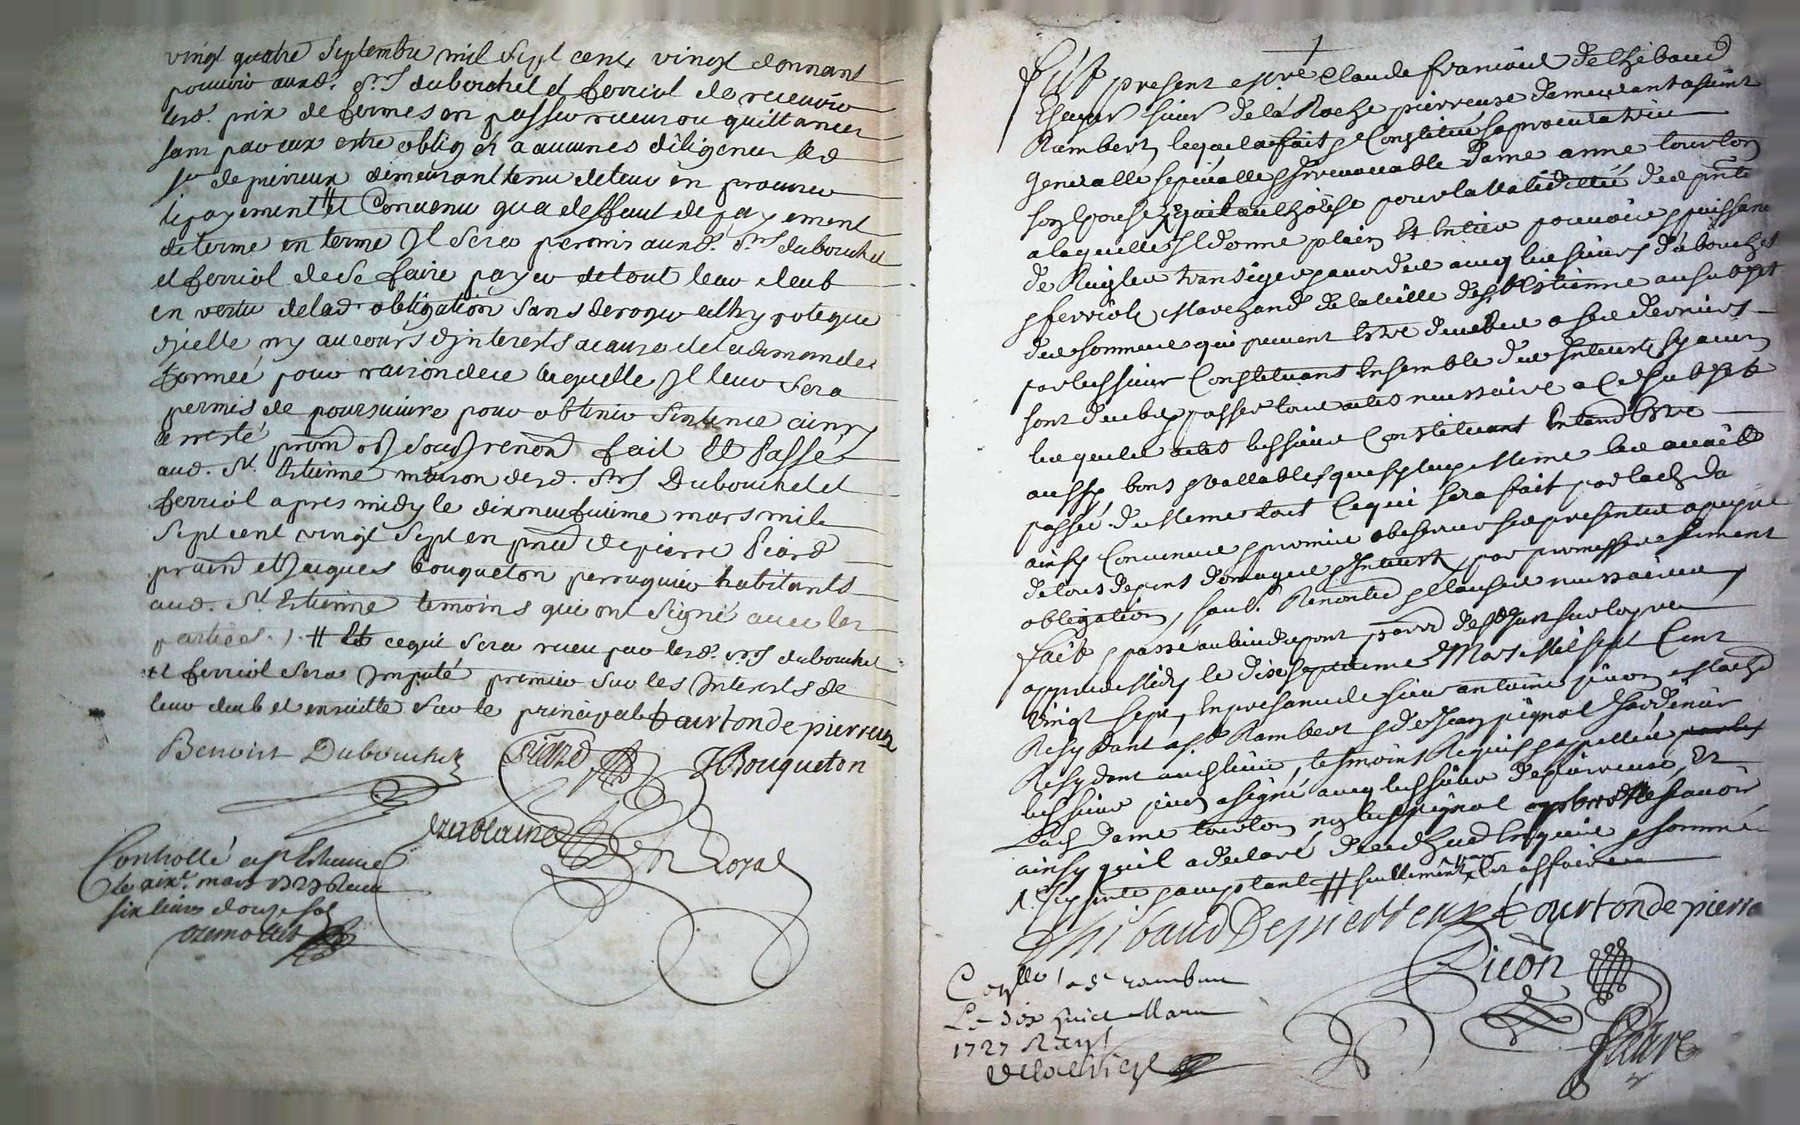 vingt quatre septembre mil sept cent vingt donnant
pouvoir ausd. srs dubouchet et ferriol de recevoir
lesd. prix de fermes en passer receu ou quittances
sans pas eux estre obligés a aucunes diligences led
sr de pierreux demeurant tenu de leur en procurer
le payement # Et Convenu qu a deffaut de payement
de terme en terme Il sera permis ausd. srs dubouchet
et ferriol de se faire payer de tout leur deub
en vertu de lad obligation sans deroger a lhypoteque
dicelle ny au cours dinterests a cause de la demande
formée pour raison de ce laquelle Il leur sera
permis de poursuivre pour obtenir sentence ainsy
arresté prom obl soub renon fait Et Passé
aud. St. Estienne maison desd. srs Dubouchet et
ferriol apres midy le dixneufuieme mars mil
sept cent vingt sept en pnce de pierre Piard
pratn et Jacques bouqueton perruquier habitants
aud. St. Estienne temoins qui ont signé avec les
parties ./. # Et ce qui sera receu par lesd. srs dubouchet
et ferriol sera Imputé premier sur les Interests de
leur deub et ensuitte sur le principal tourton de pierreux
Benoist Dubouchet
JBouqueton
Royal
Controllé a st Estienne
le xixe. mars 1727 Receu
six livres douze sols
Fut present espre Claude francois de thibaud
Escuyer sieur de la Roche pierreuse demeurant a saint
Rambert lequel a fait & Constitué sa procuratrice
generalle specialle & Irrevocable dame anne tourton
son Espouse quil authorise pour la validitté des pntes
a laquelle Il donne plein Et Entier pouvoir & puissance
de Reigler transiger & accorder avecq les sieurs dubouchet
& ferriol Marchands de la ville de st Estienne au subjet
des sommes qui peuvent Estre deubes a ses derniers
par ledt sieur Constituant Ensemble des Interests sy aucun
sont deubs passer tous actes necessaire a Ce subjet
lesquels actes ledt sieur Constituant Entend Estre
aussy bons & vallables que sy luy mesme les avait
passé de mesme tout Ce qui sera fait par lad da
ainsy Convenue & promis observer ses presentes a peyne
de tous depens domages & Interests, par promesse serment
obligation, soub. Renontes & clauses necessaires
fait & passé au lieu du pont
appres Midy le dixseptieme Mars Mil sept Cent
Vingt sept, En presance de sieur antoine picon Marchd
Resydant a st Rambert & de Jean pignol Jardinier
Resydant aud lieu, tesmoins Requis & appellés
led sieur picon a signé avecq led sieur de pierreuse, Et
Lad dame tourton non led pignol pour ne scavoir
ainsy quil a declaré de ce Enquis & sommé
# seullement les affaires
Thibaud De pierreuse tourton de pierreux
Picon
favre
Conllé a st rambert
Le dix huict Mars
1727